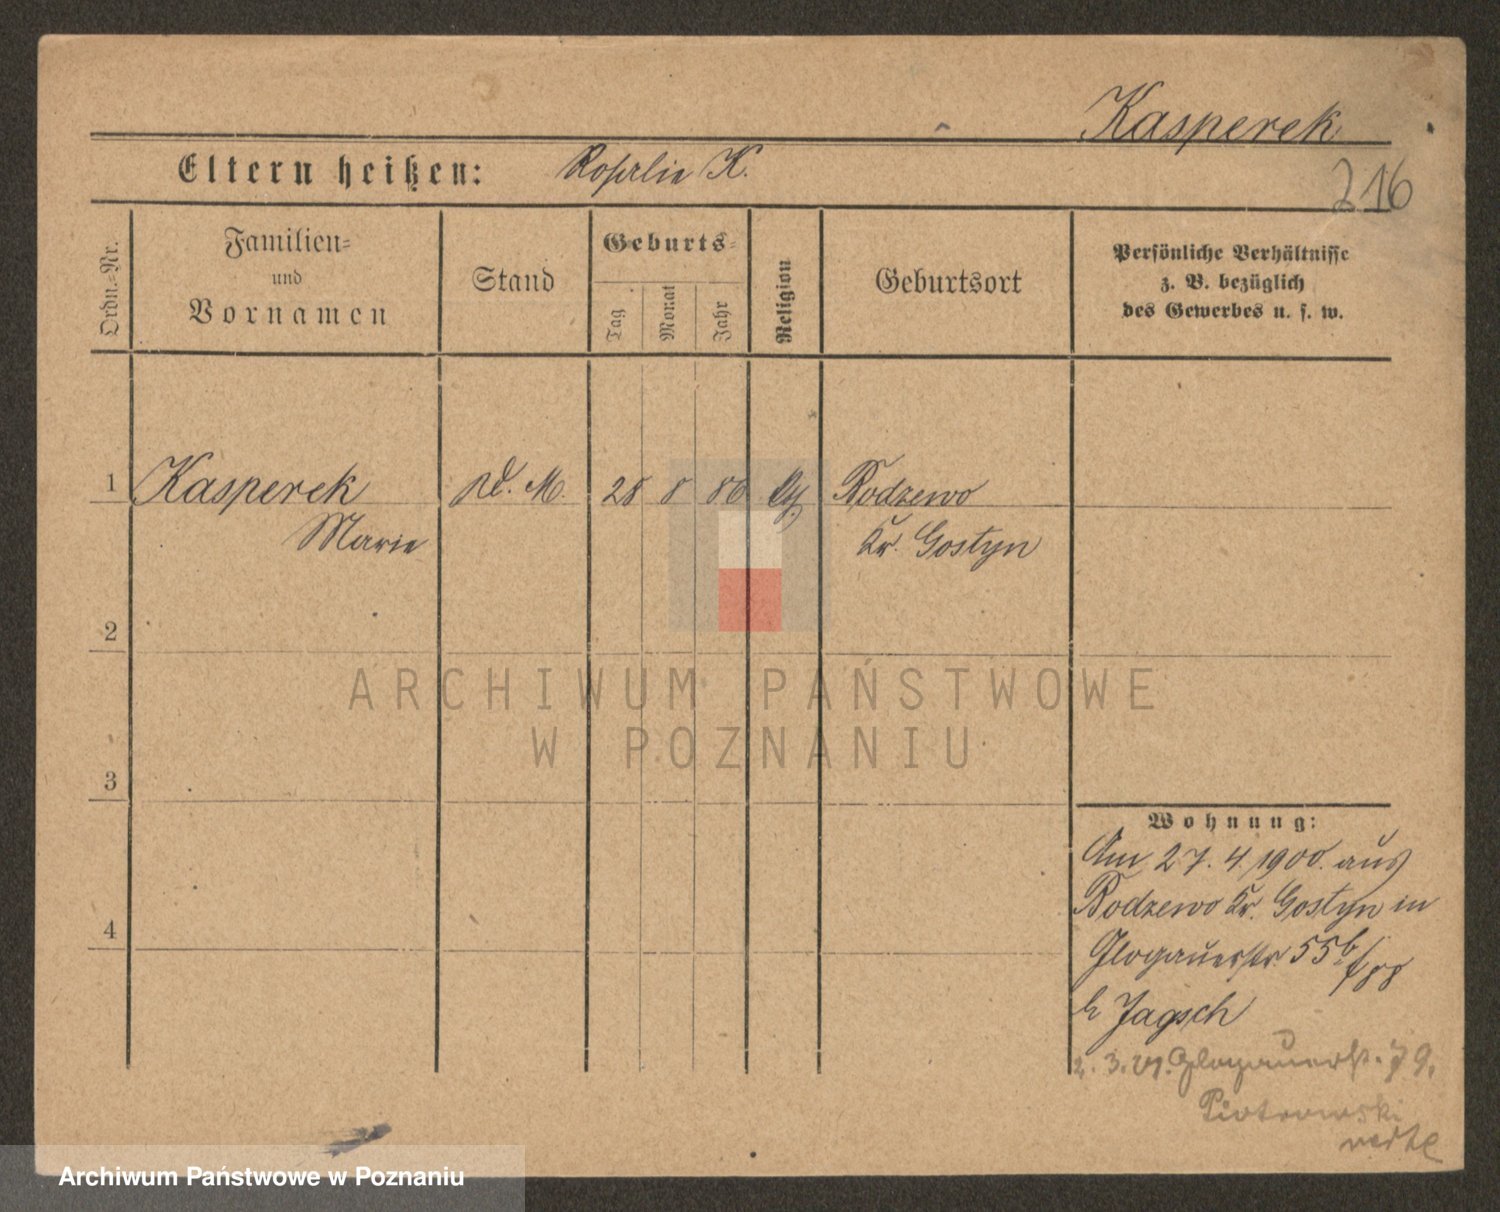 Kasperek
Eltern heißen: Rosalie K.
216
Ordn.-Nr.
Familien-
und
Vornamen
Stand
Geburts-
Tag
Monat
Jahr
Religion
Geburtsort
Persönliche Verhältnisse
z. B. bezüglich
des Gewerbes u. s. w.
1 Kasperek M. 28 8 86 Bodzewo
Marie Kr. Gostyn
2
3
4
Wohnung:
Am 27. 4. 1900. aus
Bodzewo Kr. Gostyn in
Glogauerstr. 55
b Jagsch
2. 3. Glogauerstr. 79.
Piotrowski
ARCHIWUM PAŃSTWOWE
W POZNANIU
Archiwum Państwowe w Poznaniu